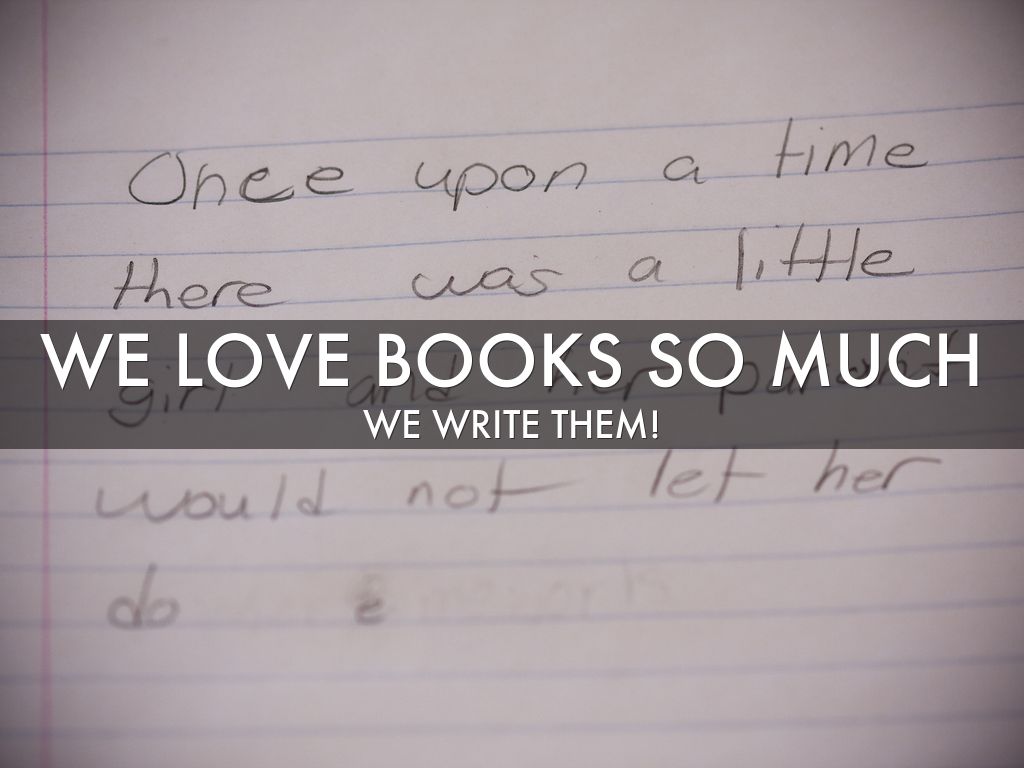 Once upon a time
there was a little
WE LOVE BOOKS SO MUCH
girl and her parents
WE WRITE THEM!
would not let her
do e